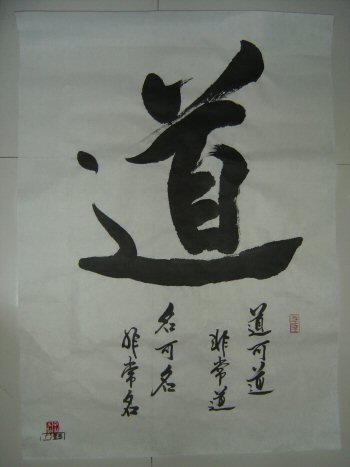 道
道可道
非常道
名可名
非常名